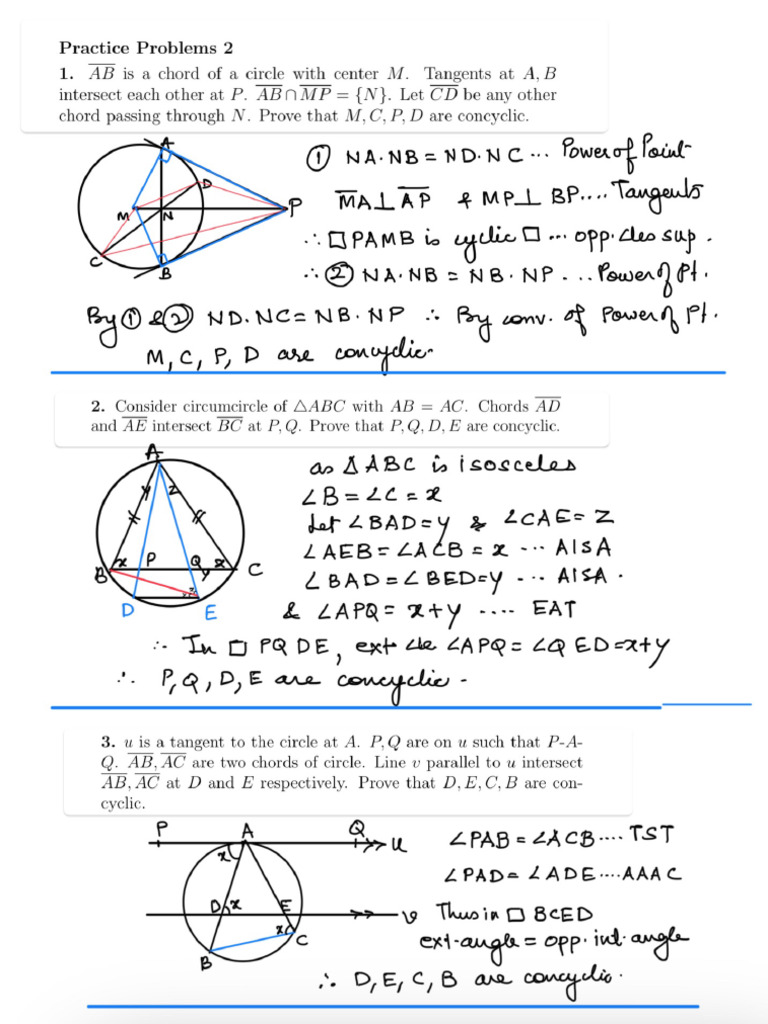 Practice Problems 2
1. AB is a chord of a circle with center M. Tangents at A, B
intersect each other at P. AB∩MP = {N}. Let CD be any other
chord passing through N. Prove that M, C, P, D are concyclic.
A
D
M
N
P
C
B
① NA·NB = ND·NC ... Power of Point
MA⊥AP & MP⊥BP.... Tangents
∴ □PAMB is cyclic □ ... opp. ∠les sup.
∴ ② NA·NB = NB·NP ... Power of Pt.
By ① & ② ND·NC = NB·NP ∴ By conv. of Power of Pt.
M, C, P, D are concyclic.
2. Consider circumcircle of △ABC with AB = AC. Chords AD
and AE intersect BC at P, Q. Prove that P, Q, D, E are concyclic.
A
y z
B x P Q y x C
D E x
as △ABC is isosceles
∠B = ∠C = x
Let ∠BAD = y & ∠CAE = z
∠AEB = ∠ACB = x ... AISA
∠BAD = ∠BED = y ... AISA.
& ∠APQ = x+y .... EAT
∴ In □ PQDE, ext ∠le ∠APQ = ∠QED = x+y
∴ P, Q, D, E are concyclic.
3. u is a tangent to the circle at A. P, Q are on u such that P-A-
Q. AB, AC are two chords of circle. Line v parallel to u intersect
AB, AC at D and E respectively. Prove that D, E, C, B are con-
cyclic.
P A Q u
x
D x E v
x C
B
∠PAB = ∠ACB .... TST
∠PAD = ∠ADE .... AAAC
Thus in □ BCED
ext-angle = opp. int. angle
∴ D, E, C, B are concyclic.